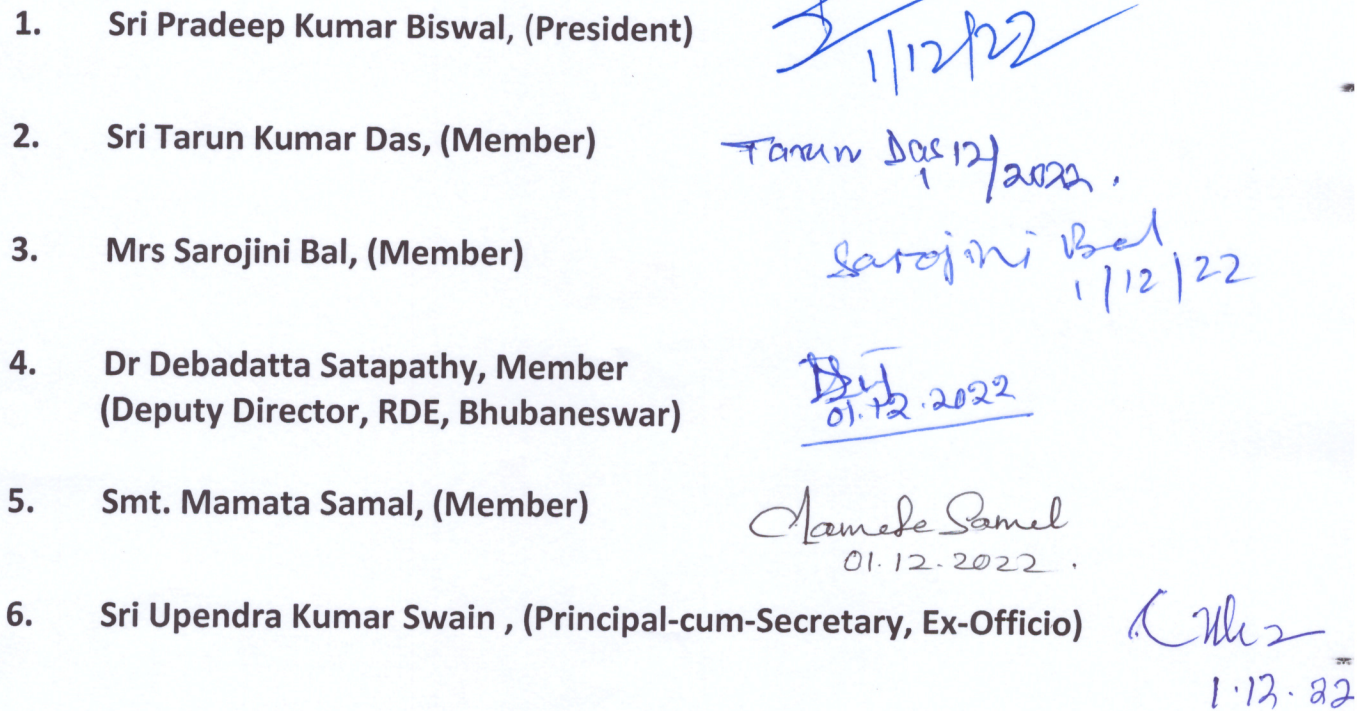 1. Sri Pradeep Kumar Biswal, (President)
1/12/22
2. Sri Tarun Kumar Das, (Member)
Tarun Das 1/12/2022.
3. Mrs Sarojini Bal, (Member)
Sarojini Bal
1/12/22
4. Dr Debadatta Satapathy, Member
(Deputy Director, RDE, Bhubaneswar)
01.12.2022
5. Smt. Mamata Samal, (Member)
Mamata Samal
01.12.2022.
6. Sri Upendra Kumar Swain , (Principal-cum-Secretary, Ex-Officio)
1.12.22